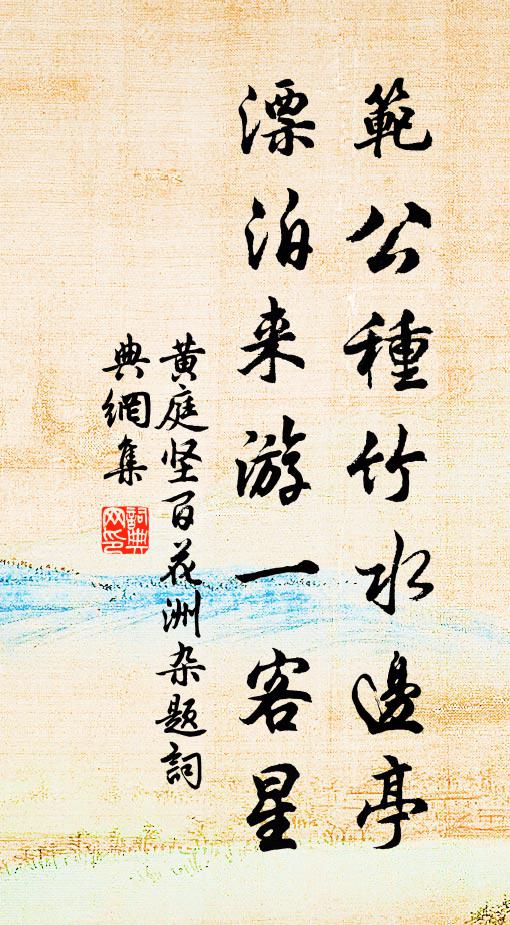 範公種竹水邊亭
漂泊来游一客星
黄庭坚百花洲杂题詞
典網集
詞典网印